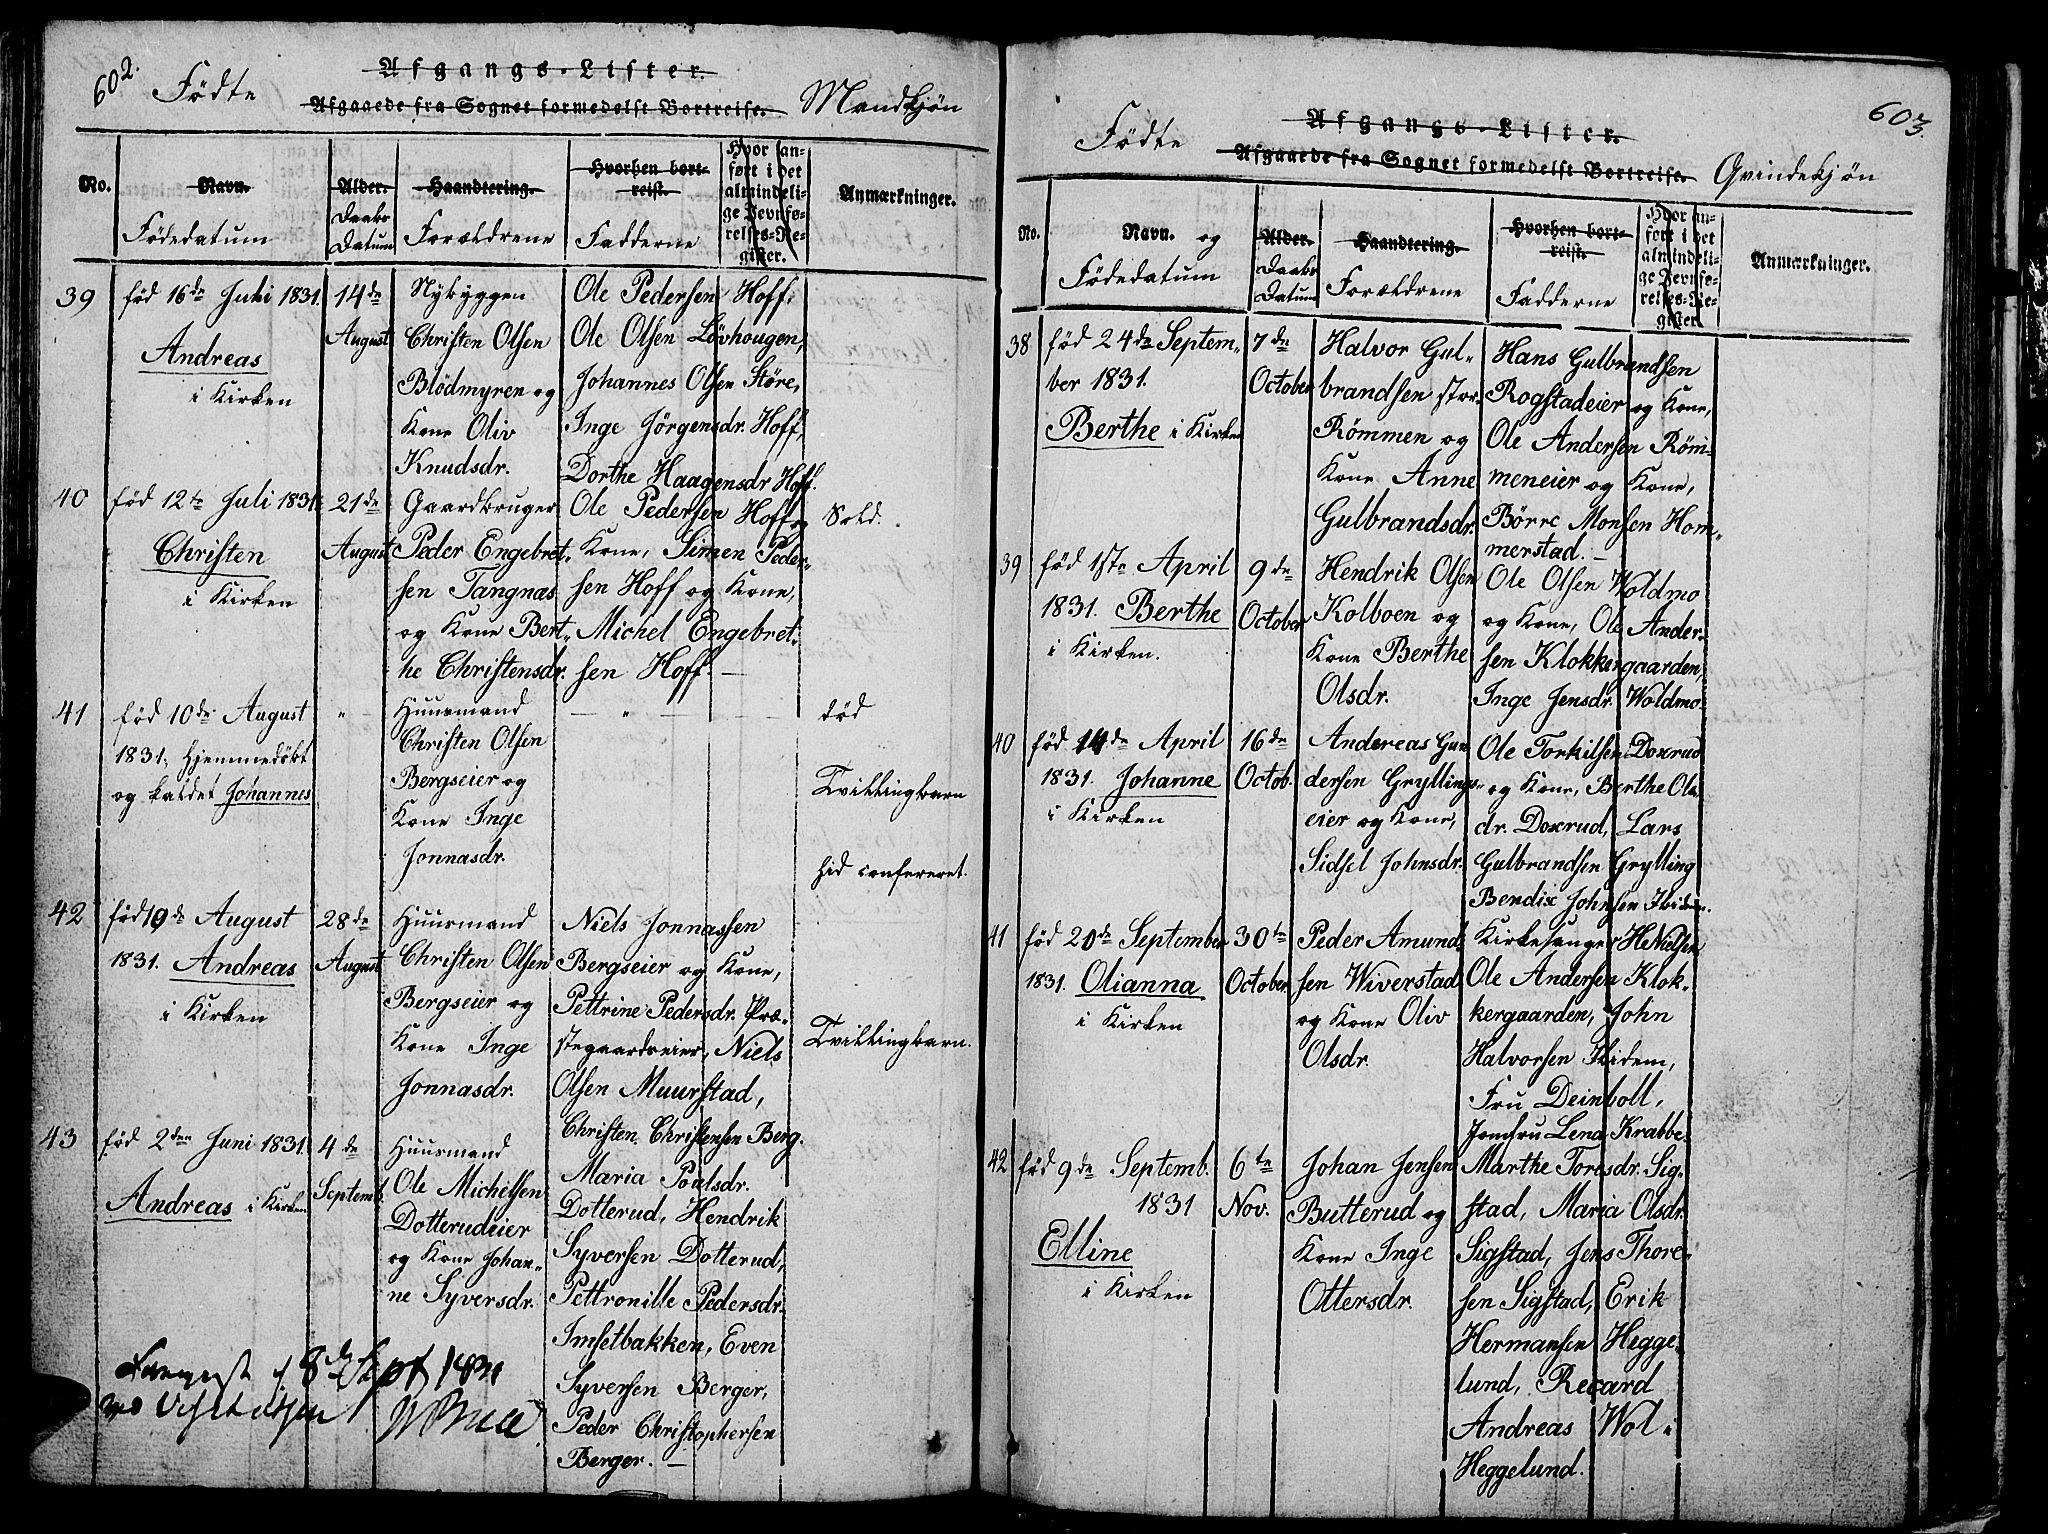 602.
Födte
Afgangs-Lister.
Afgaaede fra Sognet formedelst Bortreise.
Mandkjön
No.
Navn.
Födedatum
Alder.
Daabs
Datum
Haandtering.
Forældrene
Hvorhen bort-
reist.
Fadderne
Hvor an-
ført i det
almindeli-
ge Jevnfø-
relses-Re-
gister.
Anmærkninger.
39
föd 16de Juli 1831.
Andreas
i Kirken
14de
August
Nybyggen
Christen Olsen
Blödmyren og
Kone Oliv
Knudsdr.
Ole Pedersen Hoff,
Ole Olsen Lövhougen,
Johannes Olsen Störe,
Inge Jörgensdr. Hoff,
Dorthe Haagensdr Hoff.
40
föd 12te Juli 1831.
Christen
i Kirken
21de
August
Gaardbruger
Peder Engebret-
sen Tangnæs
og Kone Bert-
he Christensdr.
Ole Pedersen Hoff og
Kone, Simen Peder-
sen Hoff og Kone,
Michel Engebret-
sen Hoff. —
Sold.
41
föd 10de August
1831, hjemmedöbt
og kaldet Johannes
"
Huusmand
Christen Olsen
Bergseier og
Kone Inge
Jonnasdr.
— " —
död
Tvillingbarn
hid confereret.
42
föd 10de August
1831. Andreas
i Kirken
28de
August
Huusmand
Christen Olsen
Bergseier og
Kone Inge
Jonnasdr.
Niels Jonnassen
Bergseier og Kone,
Pettrine Pedersdr. Præ-
stegaardseier, Niels
Olsen Muurstad,
Christen Christensen Berg.
Tvillingbarn.
43
föd 2den Juni 1831.
Andreas i Kirken
4de
Septemb.
Huusmand
Ole Michelsen
Dotterudeier
og Kone Johan-
ne Syversdr.
Maria Poulsdr.
Dotterud, Hendrik
Syversen Dotterud,
Pettronille Pedersdr.
Imsetbakken, Even
Syversen Berger,
Peder Christophersen
Berger. —
8de Sept 1831
603.
Födte
Afgangs-Lister.
Afgaaede fra Sognet formedelst Bortreise.
Qvindekjön
No.
Navn. og
Födedatum
Alder.
Daabs
Datum
Haandtering.
Forældrene
Hvorhen bort-
reist.
Fadderne
Hvor an-
ført i det
almindeli-
ge Jevnfø-
relses-Re-
gister.
Anmærkninger.
38
föd 24de Septem-
ber 1831.
Berthe i Kirken
7de
October
Halvor Gul-
brandsen stor-
Römmen og
Kone Anne
Gulbrandsdr.
Hans Gulbrandsen
Rogstadeier og Kone,
Ole Andersen Röm-
meneier og Kone,
Börre Monsen Hom-
merstad. —
39
föd 1ste April
1831. Berthe
i Kirken.
9de
October
Hendrik Olsen
Kolboen og
Kone Berthe
Olsdr.
Ole Olsen Woldmo
og Kone, Ole Ander-
sen Klokkergaarden,
Inge Jensdr. Woldmo.
40
föd 14de April
1831. Johanne
i Kirken
16de
Octob.
Andereas Gun
dersen Gryllings-
eier og Kone,
Sidsel Johnsdr.
Ole Torkilsen Doxrud
og Kone, Berthe Ols
dr. Doxrud, Lars
Gulbrandsen Grylling
Bendix Johnsen Ibidem.
41
föd 20de September
1831. Olianna
i Kirken
30te
October
Peder Amund-
sen Wiverstad
og Kone Oliv
Olsdr.
Kirkesanger H Nielsen
Ole Andersen Klok-
kergaarden, John
Halvorsen Ibidem,
Fru Deinboll,
Jomfru Lena Krabbe.
42
föd 9de Septemb.
1831
Elline
i Kirken
6te
Nov.
Johan Jensen
Butterud og
Kone Inge
Ottersdr.
Marthe Toresdr. Sig-
stad, Maria Olsdr.
Sigstad, Jens Thore-
sen Sigstad, Erik
Hermansen Hegge-
lund, Recard
Andreas Wol-
Heggelund.